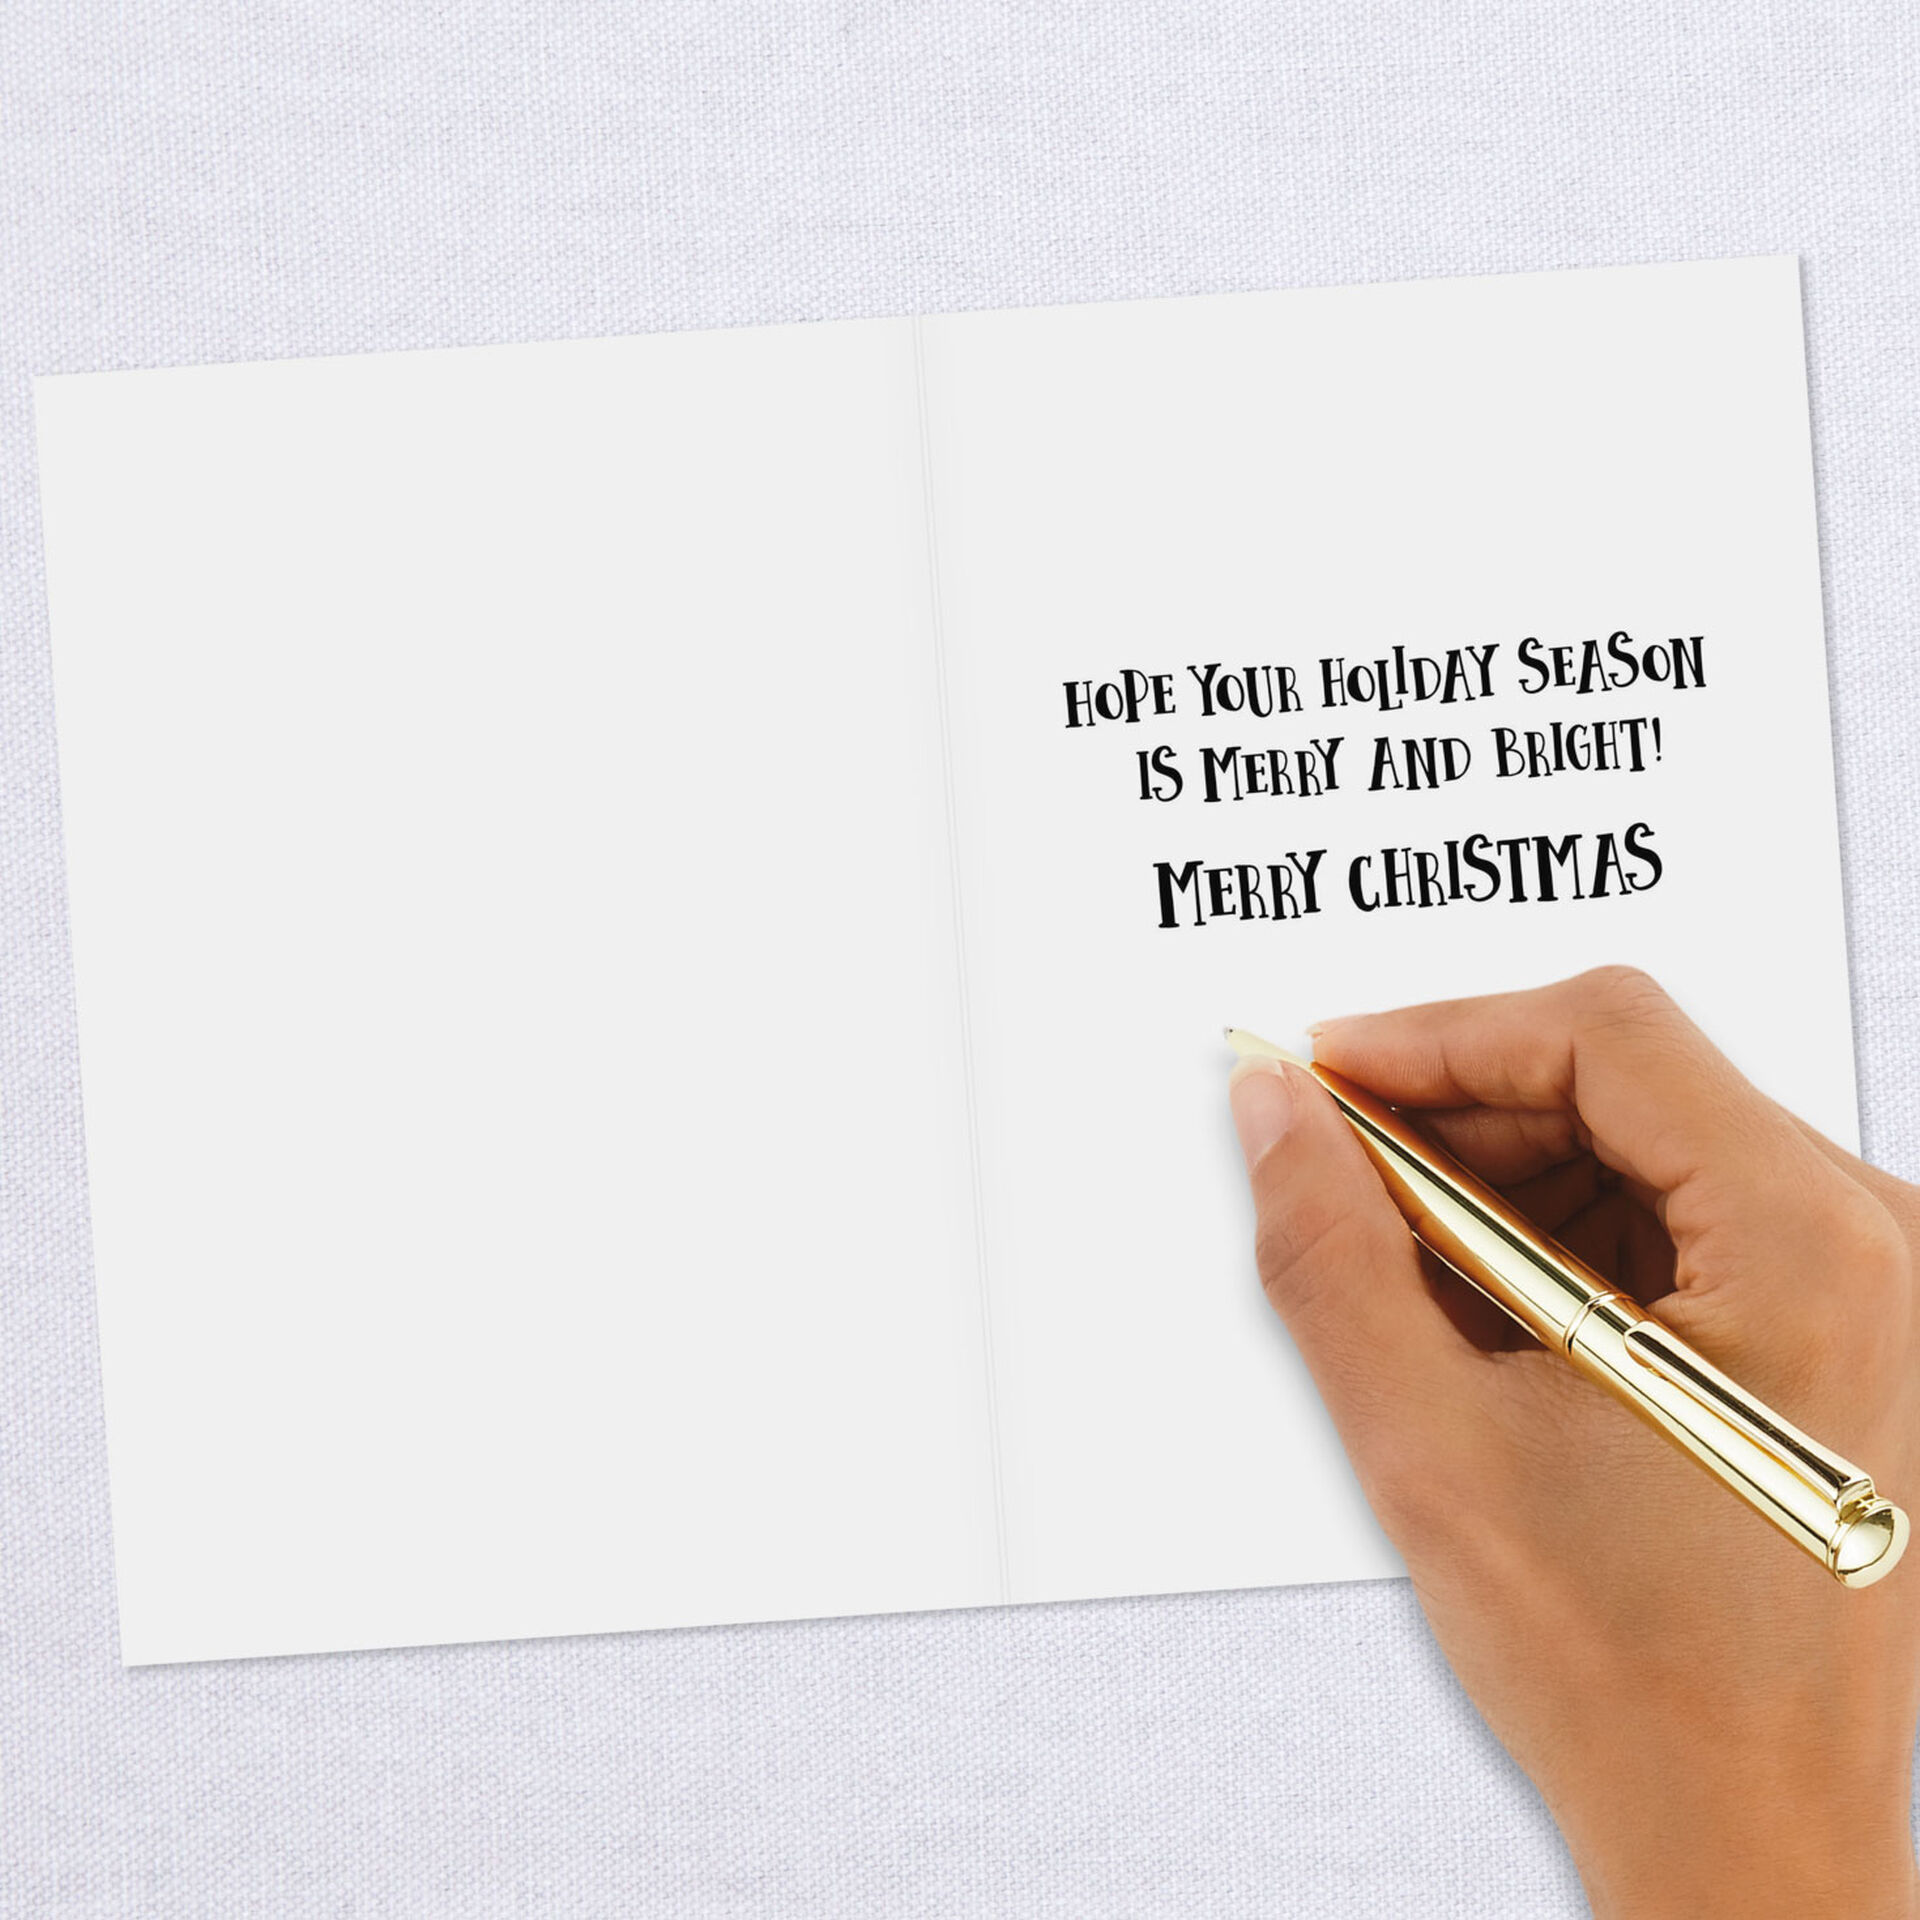 HOPE YOUR HOLIDAY SEASON
IS MERRY AND BRIGHT!
MERRY CHRISTMAS